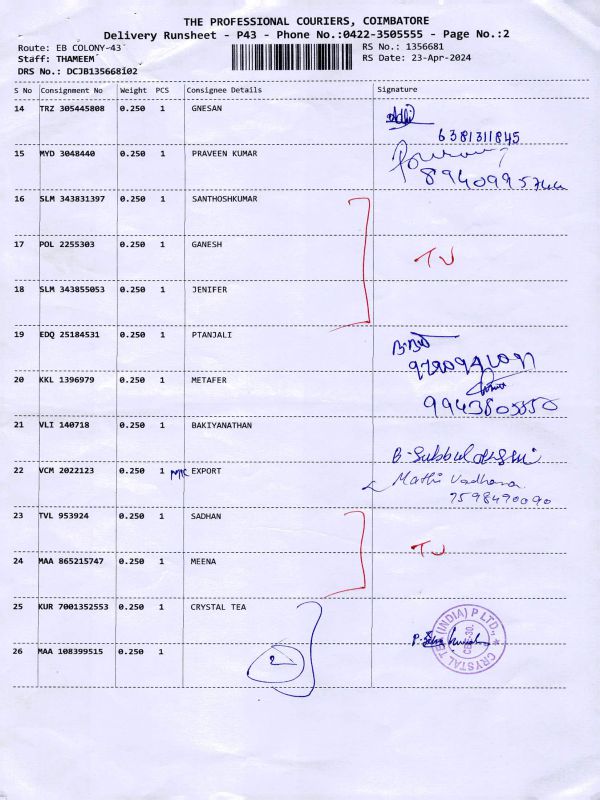 THE PROFESSIONAL COURIERS, COIMBATORE
Delivery Runsheet - P43 - Phone No.:0422-3505555 - Page No.:2
Route: EB COLONY-43 RS No.: 1356681
Staff: THAMEEM RS Date: 23-Apr-2024
DRS No.: DCJB135668102
S No Consignment No Weight PCS Consignee Details Signature
14 TRZ 305445808 0.250 1 GNESAN
6381311845
15 MYD 3048440 0.250 1 PRAVEEN KUMAR
16 SLM 343831397 0.250 1 SANTHOSHKUMAR
17 POL 2255303 0.250 1 GANESH TJ
18 SLM 343855053 0.250 1 JENIFER
19 EDQ 25184531 0.250 1 PTANJALI
20 KKL 1396979 0.250 1 METAFER
21 VLI 140718 0.250 1 BAKIYANATHAN
22 VCM 2022123 0.250 1 MTC EXPORT Mathi Vadhana
7598490090
23 TVL 953924 0.250 1 SADHAN
TJ
24 MAA 865215747 0.250 1 MEENA
25 KUR 7001352553 0.250 1 CRYSTAL TEA
CRYSTAL TEA (INDIA) P LTD.,
CBE-30.
26 MAA 108399515 0.250 1 2